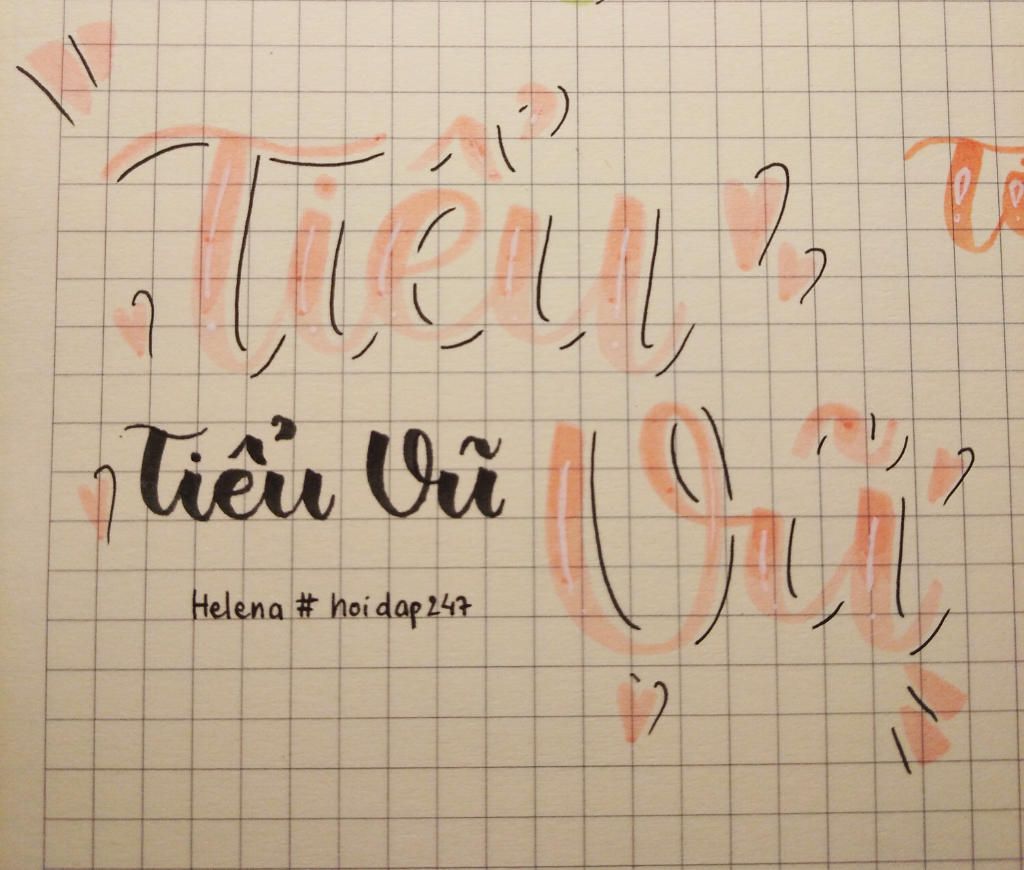 Tiểu
Vũ
Tiểu Vũ
Helena # hoidap247